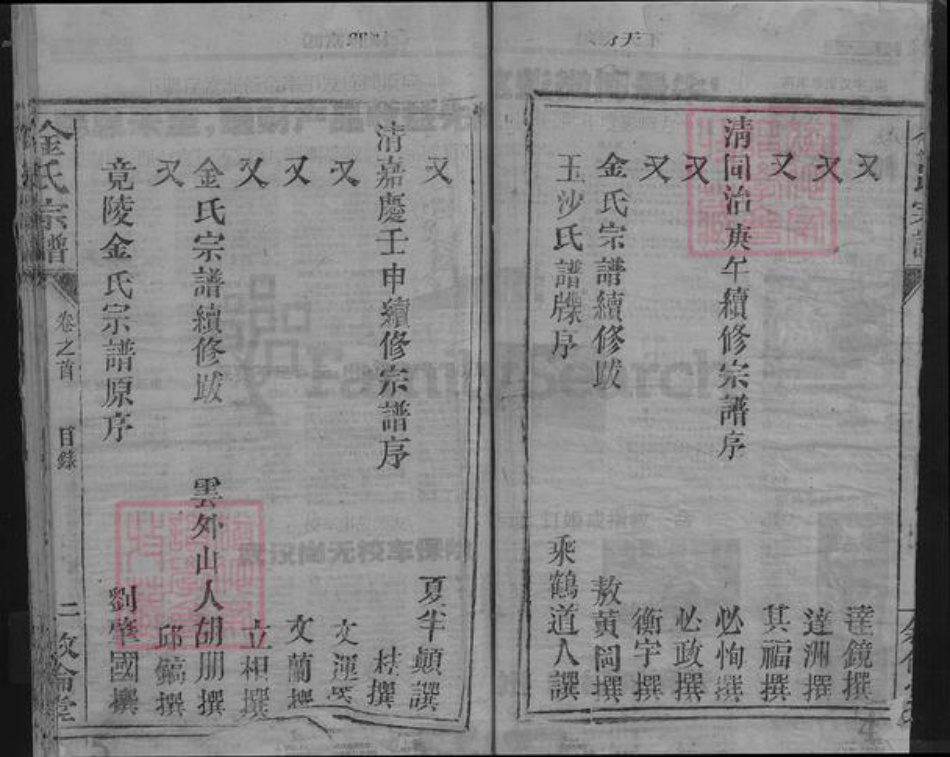 又 達鏡撰
又 達洲撰
又 其福撰
清同治庚午續修宗譜序 必恂撰
又 必政撰
又 衡宇撰
金氏宗譜續修跋 敖黃岡撰
玉沙氏譜牒序 乘鶴道人譔
又 夏半顛譔
清嘉慶壬申續修宗譜序 桂撰
又 文運撰
又 文蘭撰
又 立相撰
金氏宗譜續修跋 雲外山人胡朋撰
又 邱鎬撰
竟陵金氏宗譜原序 劉肇國撰
金氏宗譜 卷之首 目錄 二 敦倫堂
FamilySearch